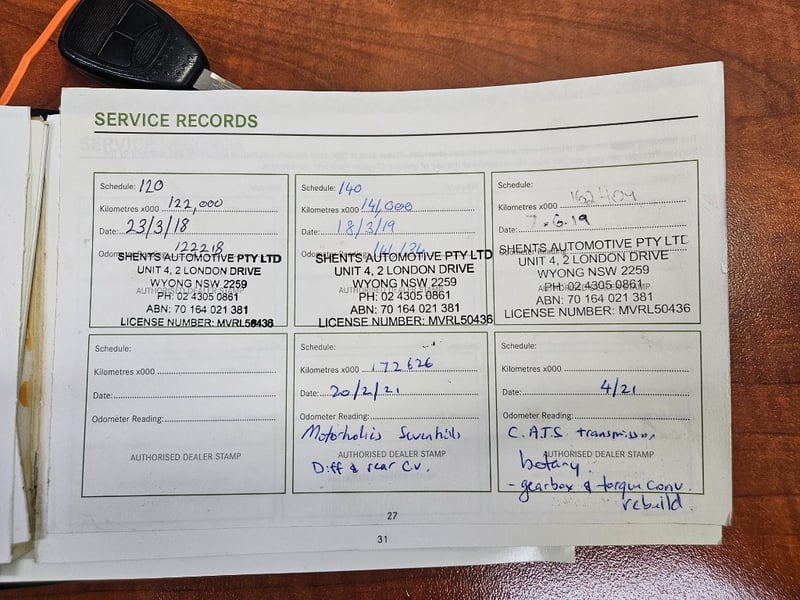 SERVICE RECORDS
Schedule: 120
Kilometres x000 122,000
Date: 23/3/18
Odometer Reading: 122218
SHENTS AUTOMOTIVE PTY LTD
UNIT 4, 2 LONDON DRIVE
WYONG NSW 2259
AUTHORISED DEALER STAMP
PH: 02 4305 0861
ABN: 70 164 021 381
LICENSE NUMBER: MVRL50436
Schedule: 140
Kilometres x000 141,000
Date: 18/3/19
Odometer Reading: 141134
SHENTS AUTOMOTIVE PTY LTD
UNIT 4, 2 LONDON DRIVE
WYONG NSW 2259
AUTHORISED DEALER STAMP
PH: 02 4305 0861
ABN: 70 164 021 381
LICENSE NUMBER: MVRL50436
Schedule:
Kilometres x000 162404
Date: 7.6.19
SHENTS AUTOMOTIVE PTY LTD
UNIT 4, 2 LONDON DRIVE
WYONG NSW 2259
AUTHORISED DEALER STAMP
PH: 02 4305 0861
ABN: 70 164 021 381
LICENSE NUMBER: MVRL50436
Schedule:
Kilometres x000
Date:
Odometer Reading:
AUTHORISED DEALER STAMP
Schedule:
Kilometres x000 172626
Date: 20/2/21
Odometer Reading:
Motorholics Sevenhills
AUTHORISED DEALER STAMP
Diff & rear CV.
Schedule:
Kilometres x000
Date: 4/21
Odometer Reading:
C.A.T.S transmission
AUTHORISED DEALER STAMP
botany.
- gearbox & torque conv.
rebuild.
27
31